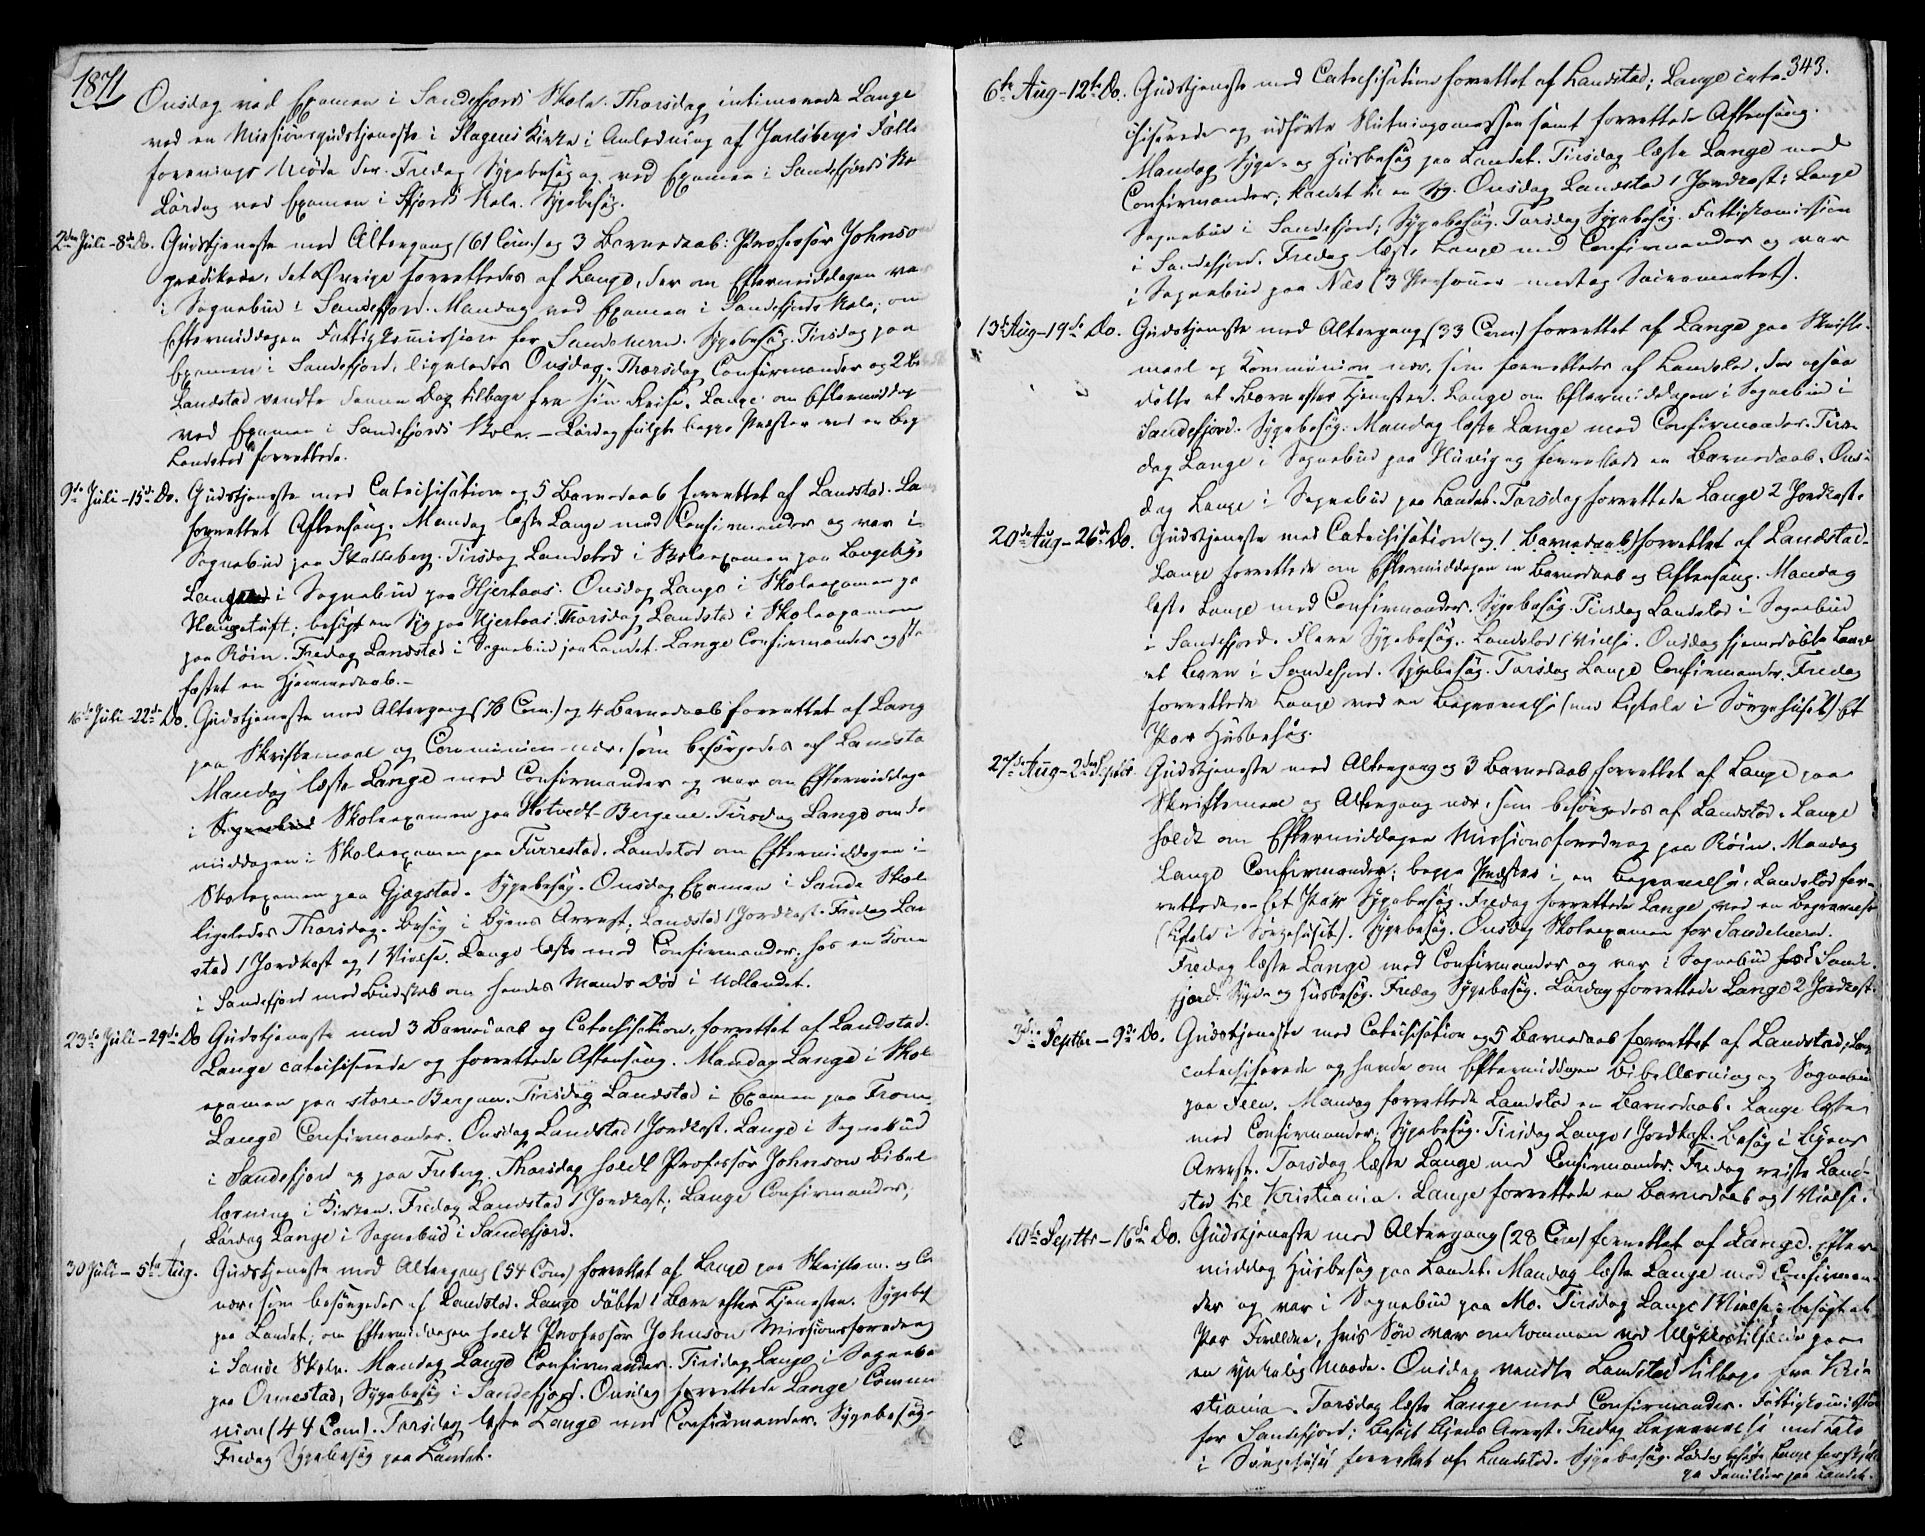 1871
Onsdag ved Examen i Sandefjords Skole. Thorsdag intimerede Lange
ved en Missionsgudstjeneste i Slagens Kirke i Anledning af Jarlsbergs Fælles
forenings Møde der. Fredag Sygebesøg og ved Examen i Sandefjords Sko
Lørdag ved Examen i Sfjords Skole. Sygebesøg.
2den Juli - 8de Do. Gudstjeneste med Altergang (61 Com.) og 3 Barnedaab: Professor Johnson
prædikede, det Øvrige forrettedes af Lange, der om Eftermiddagen var
i Sognebud i Sandefjord. Mandag ved Examen i Sandefjords Skole; om
Eftermiddagen Fattigkommission for Sandeherred. Sygebesøg. Tirsdag paa
Examen i Sandefjord, ligeledes Onsdag. Thorsdag Confirmander og 2
Landstad vendte denne Dag tilbage fra sin Reise. Lange om Eftermiddag
ved Examen i Sandefjords Skole. - Lørdag fulgte begge Præster ved en Beg
Landstad forrettede.
9de Juli - 15de Do. Gudstjeneste med Catechisation og 5 Barnedaab forrettet af Landstad. La
forrettet Aftensang. Mandag læste Lange med Confirmander og var i
Sognebud paa Skalleberg. Tirsdag Landstad i Skoleexamen paa Langeby
Lange i Sognebud paa Hjertaas. Onsdag Lange i Skoleexamen pa
Haugstuft; besøgt en Syg paa Hjertaas. Thorsdag Landstad i Skoleexamen
paa Røin. Fredag Landstad i Sognebud paa Landet. Lange Confirmander og sta
fæstet en Hjemmedaab. -
16de Juli - 22de Do. Gudstjeneste med Altergang (78 Com.) og 4 Barnedaab forrettet af Lang
paa Skriftemaal og Communion nær, som besørgedes af Landsta
Mandag læste Lange med Confirmander og var om Eftermiddage
i Sognebud Skoleexamen paa Hotvedt-Bergene. Tirsdag Lange om
middagen i Skoleexamen paa Furrestad. Landstad om Eftermiddagen i
Skoleexamen paa Gjægstad. Sygebesøg. Onsdag Examen i Sande Skole
ligeledes Thorsdag. Besøg i Byens Arrest; Landstad 1 Jordkast. Fredag Lan
stad 1 Jordkast og 1 Vielse. Lange læste med Confirmander; hos en Kone
i Sandefjord med Budskab om hendes Mands Død i Udlandet.
23de Juli - 29de Do Gudstjeneste med 3 Barnedaab og Catechisation, forrettet af Landstad.
Lange catechiserede og forrettede Aftensang. Mandag Lange i Skole
examen paa store Bergan. Tirsdag Landstad i Examen paa From
Lange Confirmander. Onsdag Landstad 1 Jordkast. Lange i Sognebud
i Sandefjord og paa Freberg. Thorsdag holdt Professor Johnson Bibel
læsning i Kirken. Fredag Landstad 1 Jordkast; Lange Confirmander;
Lørdag Lange i Sognebud i Sandefjord.
30 Juli - 5te Aug. Gudstjeneste med Altergang (54 Com) forrettet af Lange paa Skriftem. og Co
nær, som besørgedes af Landstad. Lange døbte 1 Barn efter Tjenesten. Sygebes
paa Landet; om Eftermiddagen holdt Professor Johnson Missionsforedrag
i Sande Skole. Mandag Lange Confirmander. Tirsdag Lange i Sognebu
paa Ormestad, Sygebesøg i Sandefjord. Onsdag forrettede Lange Commu
nion (44 Com). Torsdag læste Lange med Confirmander. Sygebesøg.
Fredag Sygebesøg paa Landet.
343.
6te Aug - 12te Do. Gudstjeneste med Catechisation forrettet af Landstad; Lange cate-
chiserede og udførte Slutningsmessen samt forrettede Aftensang.
Mandag Syge- og Husbesøg paa Landet. Tirsdag læste Lange med
Confirmander; kaldet til en Syg. Onsdag Landstad 1 Jordkast; Lange
Sognebud i Sandefjord; Sygebesøg. Torsdag Sygebesøg. Fattigkomission
i Sandefjord. Fredag læste Lange med Confirmander og var
i Sognebud paa Næs (3 Personer modtog Sacramentet).
13de Aug - 19de Do. Gudstjeneste med Altergang (33 Com) forrettet af Lange paa Skrifte-
maal og Kommunion nær, som forrettedes af Landstad, der ogsaa
døbte et Barn efter Tjenesten. Lange om Eftermiddagen i Sognebud i
Sandefjord. Sygebesøg. Mandag læste Lange med Confirmander. Tirs-
dag Lange i Sognebud paa Huvig og forrettede en Barnedaab. Ons-
dag Lange i Sognebud paa Landet. Torsdag forrettede Lange 2 Jordkast.
20de Aug - 26de Do. Gudstjeneste med Catechisation og 1 Barnedaab forrettet af Landstad.
Lange forrettede om Eftermiddagen en Barnedaab og Aftensang. Mandag
læste Lange med Confirmander. Sygebesøg. Tirsdag Landstad i Sognebud
i Sandefjord. Flere Sygebesøg. Landstad 1 Vielse. Onsdag hjemmedøbte Lange
et Barn i Sandefjord. Sygebesøg. Torsdag Lange Confirmander. Fredag
forrettede Lange ved en Begravelse (med Ligtale i Sørgehuset). Et
Par Husbesøg.
27de Aug - 2den Septbr. Gudstjeneste med Altergang og 3 Barnedaab forrettet af Lange paa
Skriftemaal og Altergang nær, som besørgedes af Landstad. Lange
holdt om Eftermiddagen Missionsforedrag paa Røin. Mandag
Lange Confirmander; begge Præster i en Begravelse, Landstad for-
rettede. Et Par Sygebesøg. Fredag forrettede Lange ved en Begravelse
(Ligtale i Sørgehuset). Sygebesøg. Onsdag Skoleexamen for Sandeherred.
Fredag læste Lange med Confirmander og var i Sognebud i Sande-
fjord. Syge- og Husbesøg. Fredag Sygebesøg. Lørdag forrettede Lange 2 Jordkast.
3die Septbr - 9de Do. Gudstjeneste med Catechisation og 5 Barnedaab forrettet af Landstad; Lange
catechiserede og havde om Eftermiddagen Bibellæsning og Sognebud
paa Feen. Mandag forrettede Landstad en Barnedaab. Lange læste
med Confirmander; Sygebesøg. Tirsdag Lange 1 Jordkast. Besøg i Byens
Arrest. Torsdag læste Lange med Confirmander. Fredag reiste Land-
stad til Kristiania. Lange forrettede en Barnedaab og 1 Vielse.
10de Septbr - 16de Do. Gudstjeneste med Altergang (28 Com) forrettet af Lange. Efter-
middag Husbesøg paa Landet. Mandag læste Lange med Confirman-
der og var i Sognebud paa Mo. Tirsdag Lange 1 Vielse; besøgt et
Par Forældre, hvis Søn var omkommen ved Ulykkestilfælde paa
en ynkelig Maade. Onsdag vendte Landstad tilbage fra Kri-
stiania. Torsdag læste Lange med Confirmander. Fattigkomission
for Sandefjord; besøgt Byens Arrest. Fredag Begravelse med Tale
i Sørgehuset forrettet af Landstad. Sygebesøg. Lørdag besøgte Lange forskjelli
ge Familier paa Landet.